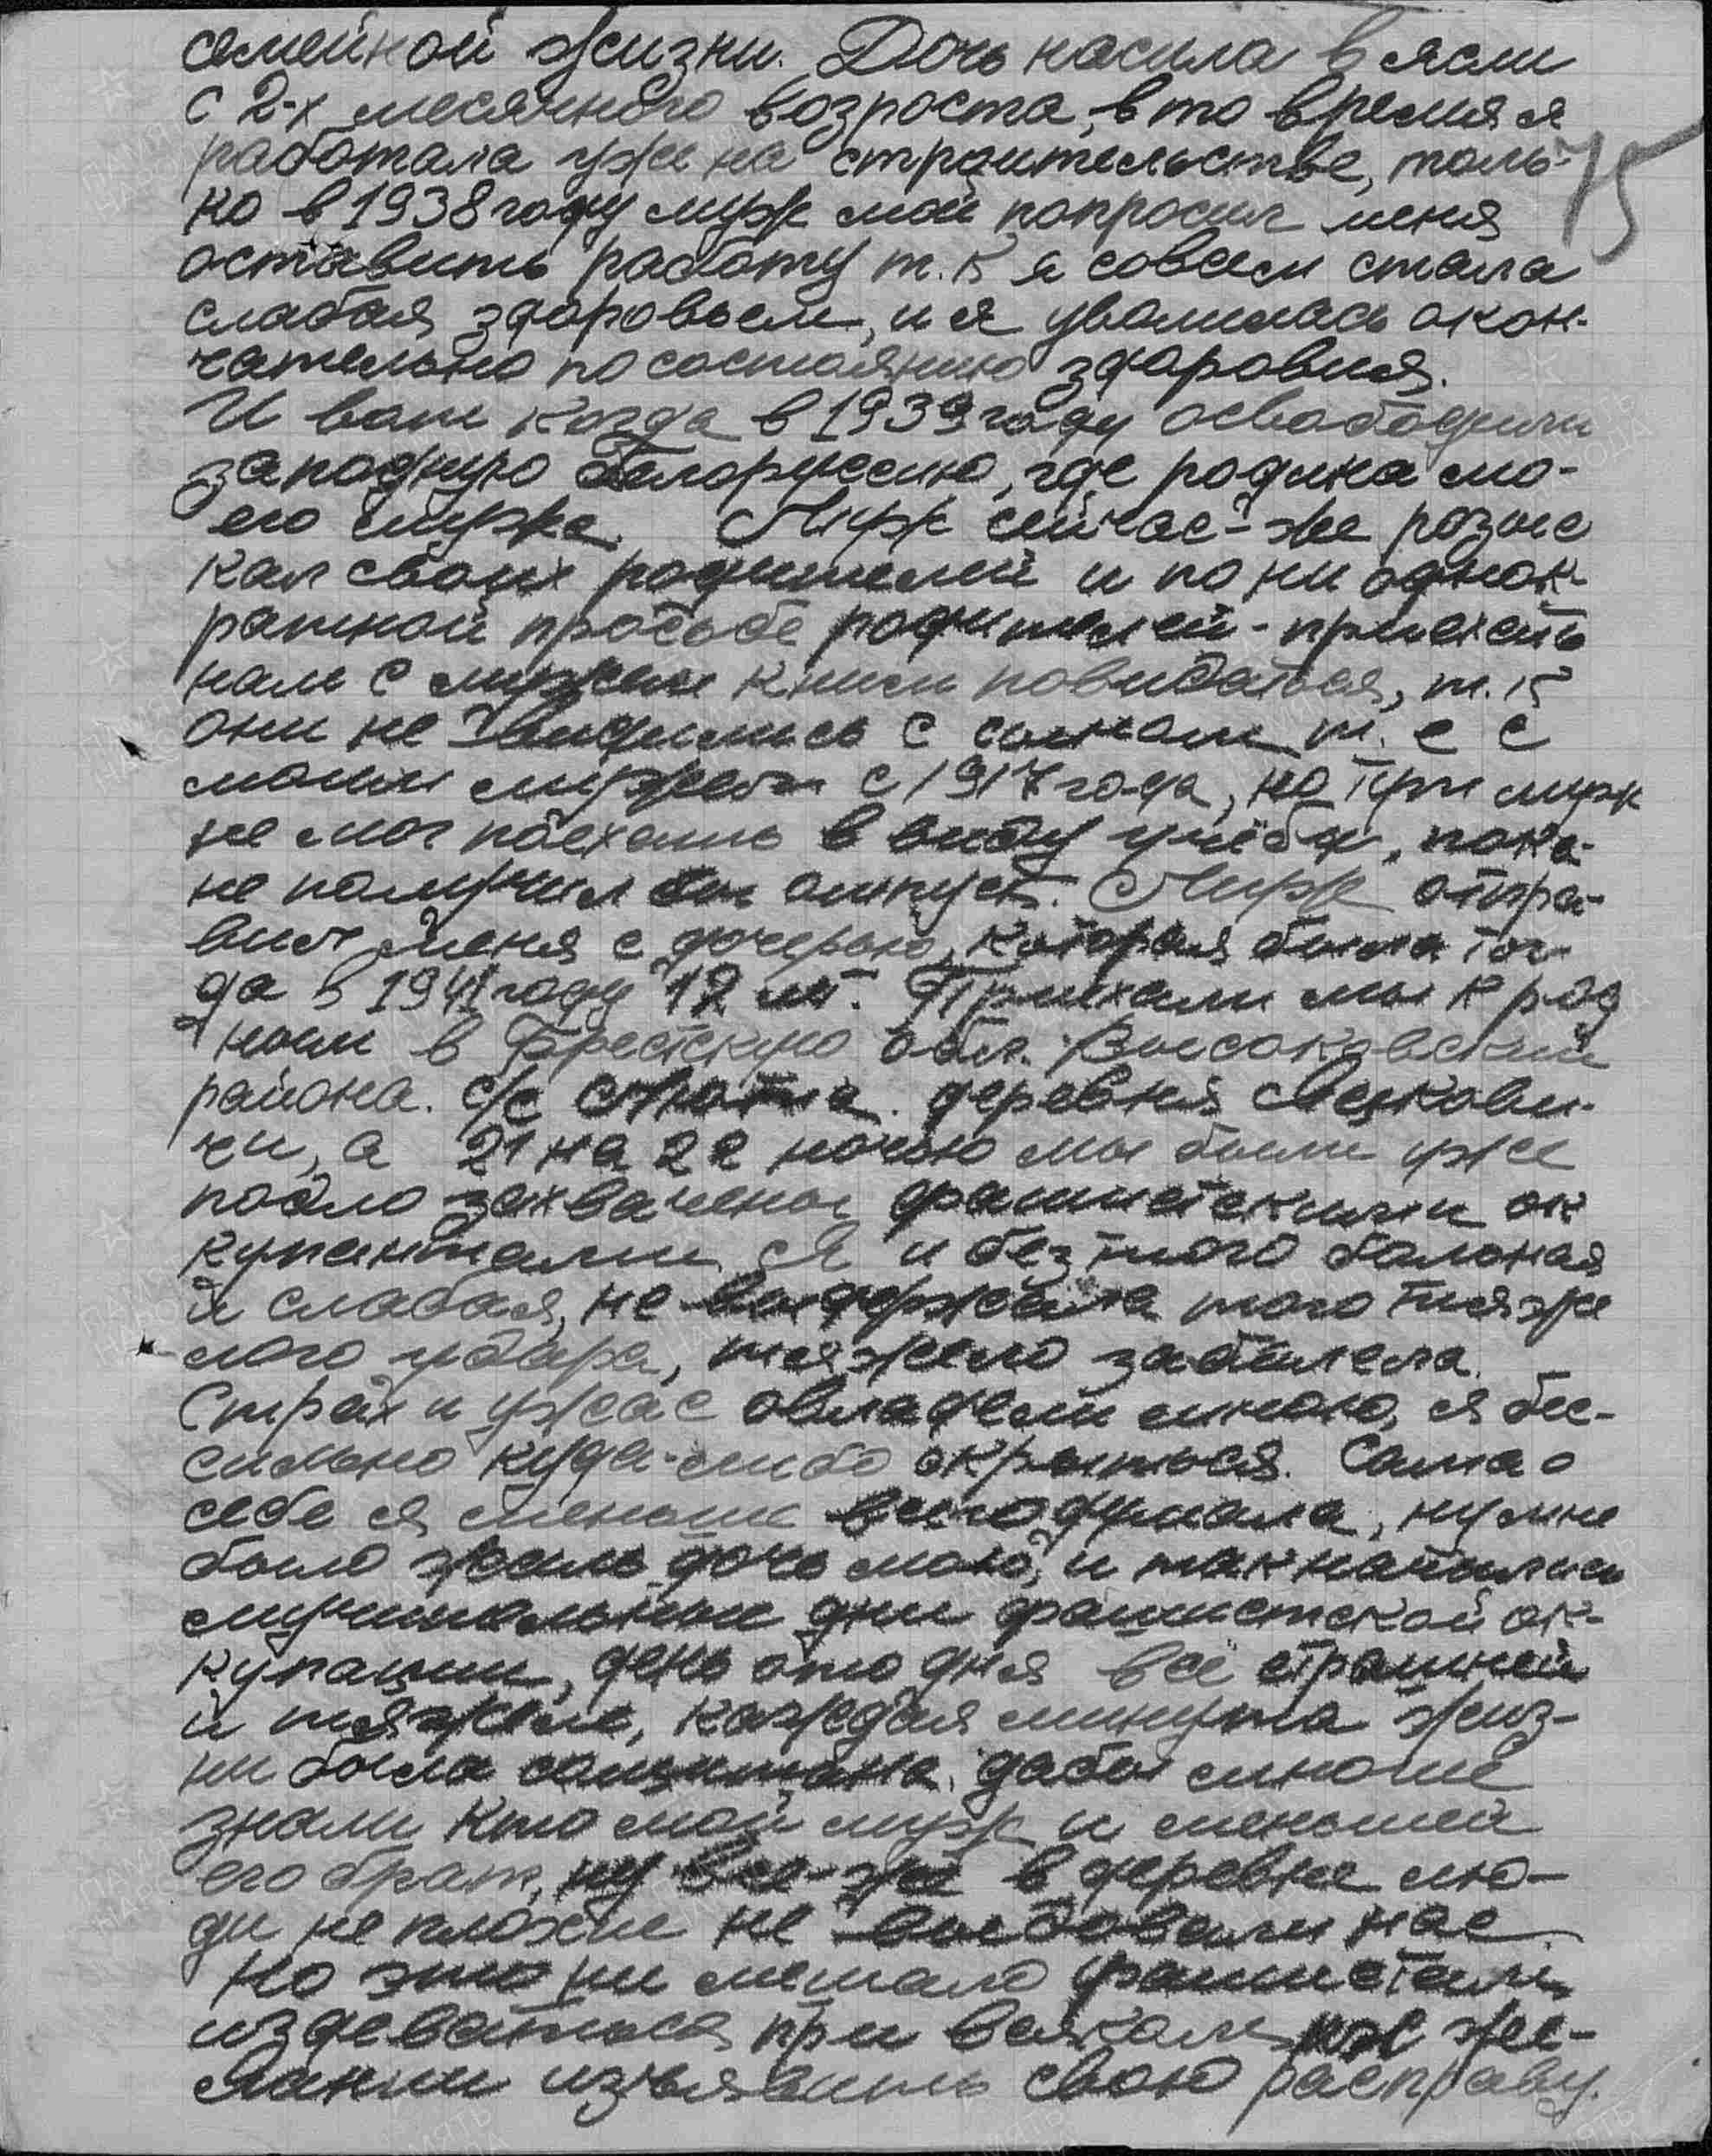 семейной жизни. Дочь насила в ясли
с 2-х месячного возроста, в то время я
работала уже на строительстве, толь-
75
ко в 1938 году муж мой попросил меня
оставить работу т.к я совсем стала
слабая здоровьем, и я уволилась окон-
чательно по состоянию здоровия.
И вот когда в 1939 году освободили
западную Белоруссию, где родина мо-
его мужа. Муж сейчас-же розыс
кал своих родителей и по ни однок-
ратной просьбе родителей - приехать
нам с мужем к ним повидаться, т.к
они не видились с сыном т. е с
моим мужем с 1917 года, но муж
не мог поехать в виду учёбы, пока-
не получил он отпуск. Муж отпра-
вил меня с дочерью, которая была тог-
да в 1941 году 12 лет. Приехали мы к род
ным в Брестскую обл. Высоковский
района. с/с деревня
чи, а 21 на 22 ночью мы были уже
подло захвачены фашистскими ок
купантами. Я и без того больная
и слабая, не выдержала того тяже
лого удара, тяжело заболела.
Страх и ужас овладели мною, я бес-
сильно куда-либо скрыться. Сама о
себе я меньше всего думала, ну мне
было жаль дочь мою, и так начались
мучительные дни фашистской ок-
купации, день ото дня всё страшней
и тяжеле, каждая минута жиз-
ни была сощитана, дабы
знали кто мой муж и меньшей
его брат, ну все-же в деревне лю-
ди не плохие не выдовали нас
но это ни мешало фашистам
издеваться при всяком их же-
лании изъявить свою расправу.